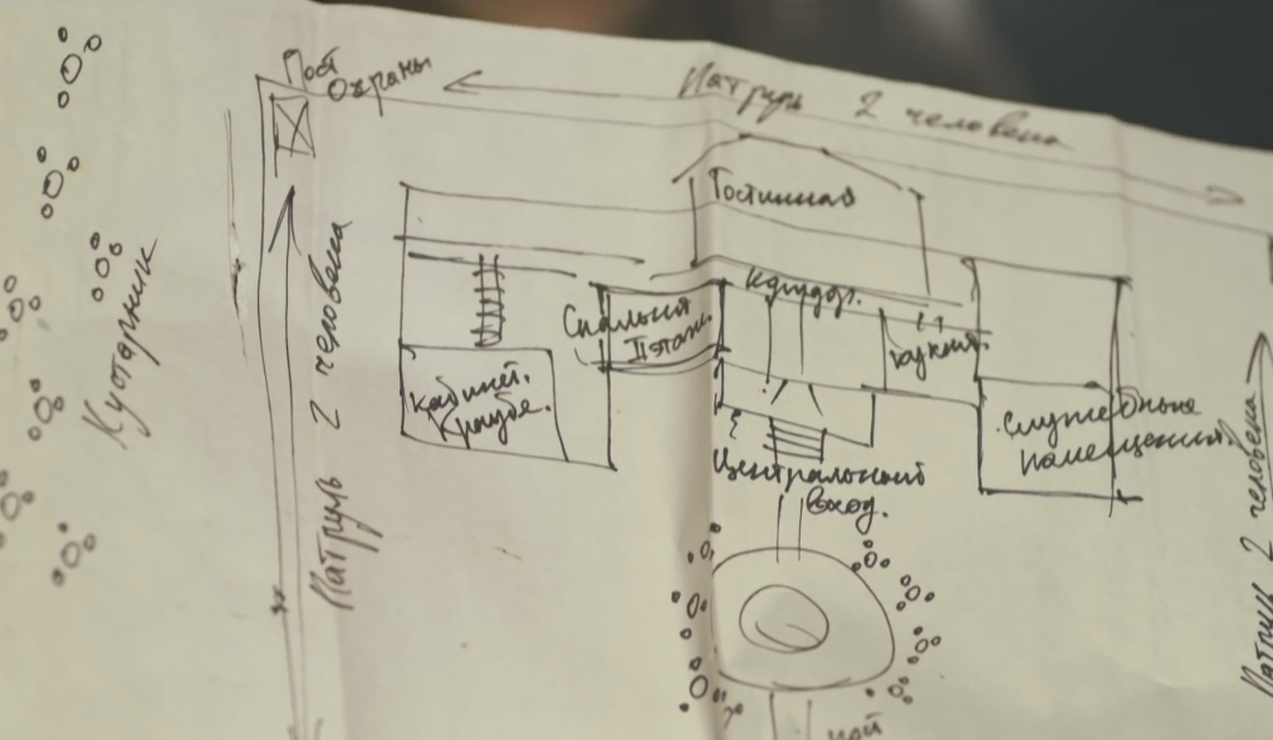 Пост
Охраны
Патруль 2 человека
Гостинная
Коридор.
Спальня
II этаж.
кухня.
Кабинет.
Краубе.
Служебные
помещения.
Центральный
вход.
Кустарник
Патруль 2 человека
Патруль 2 человека